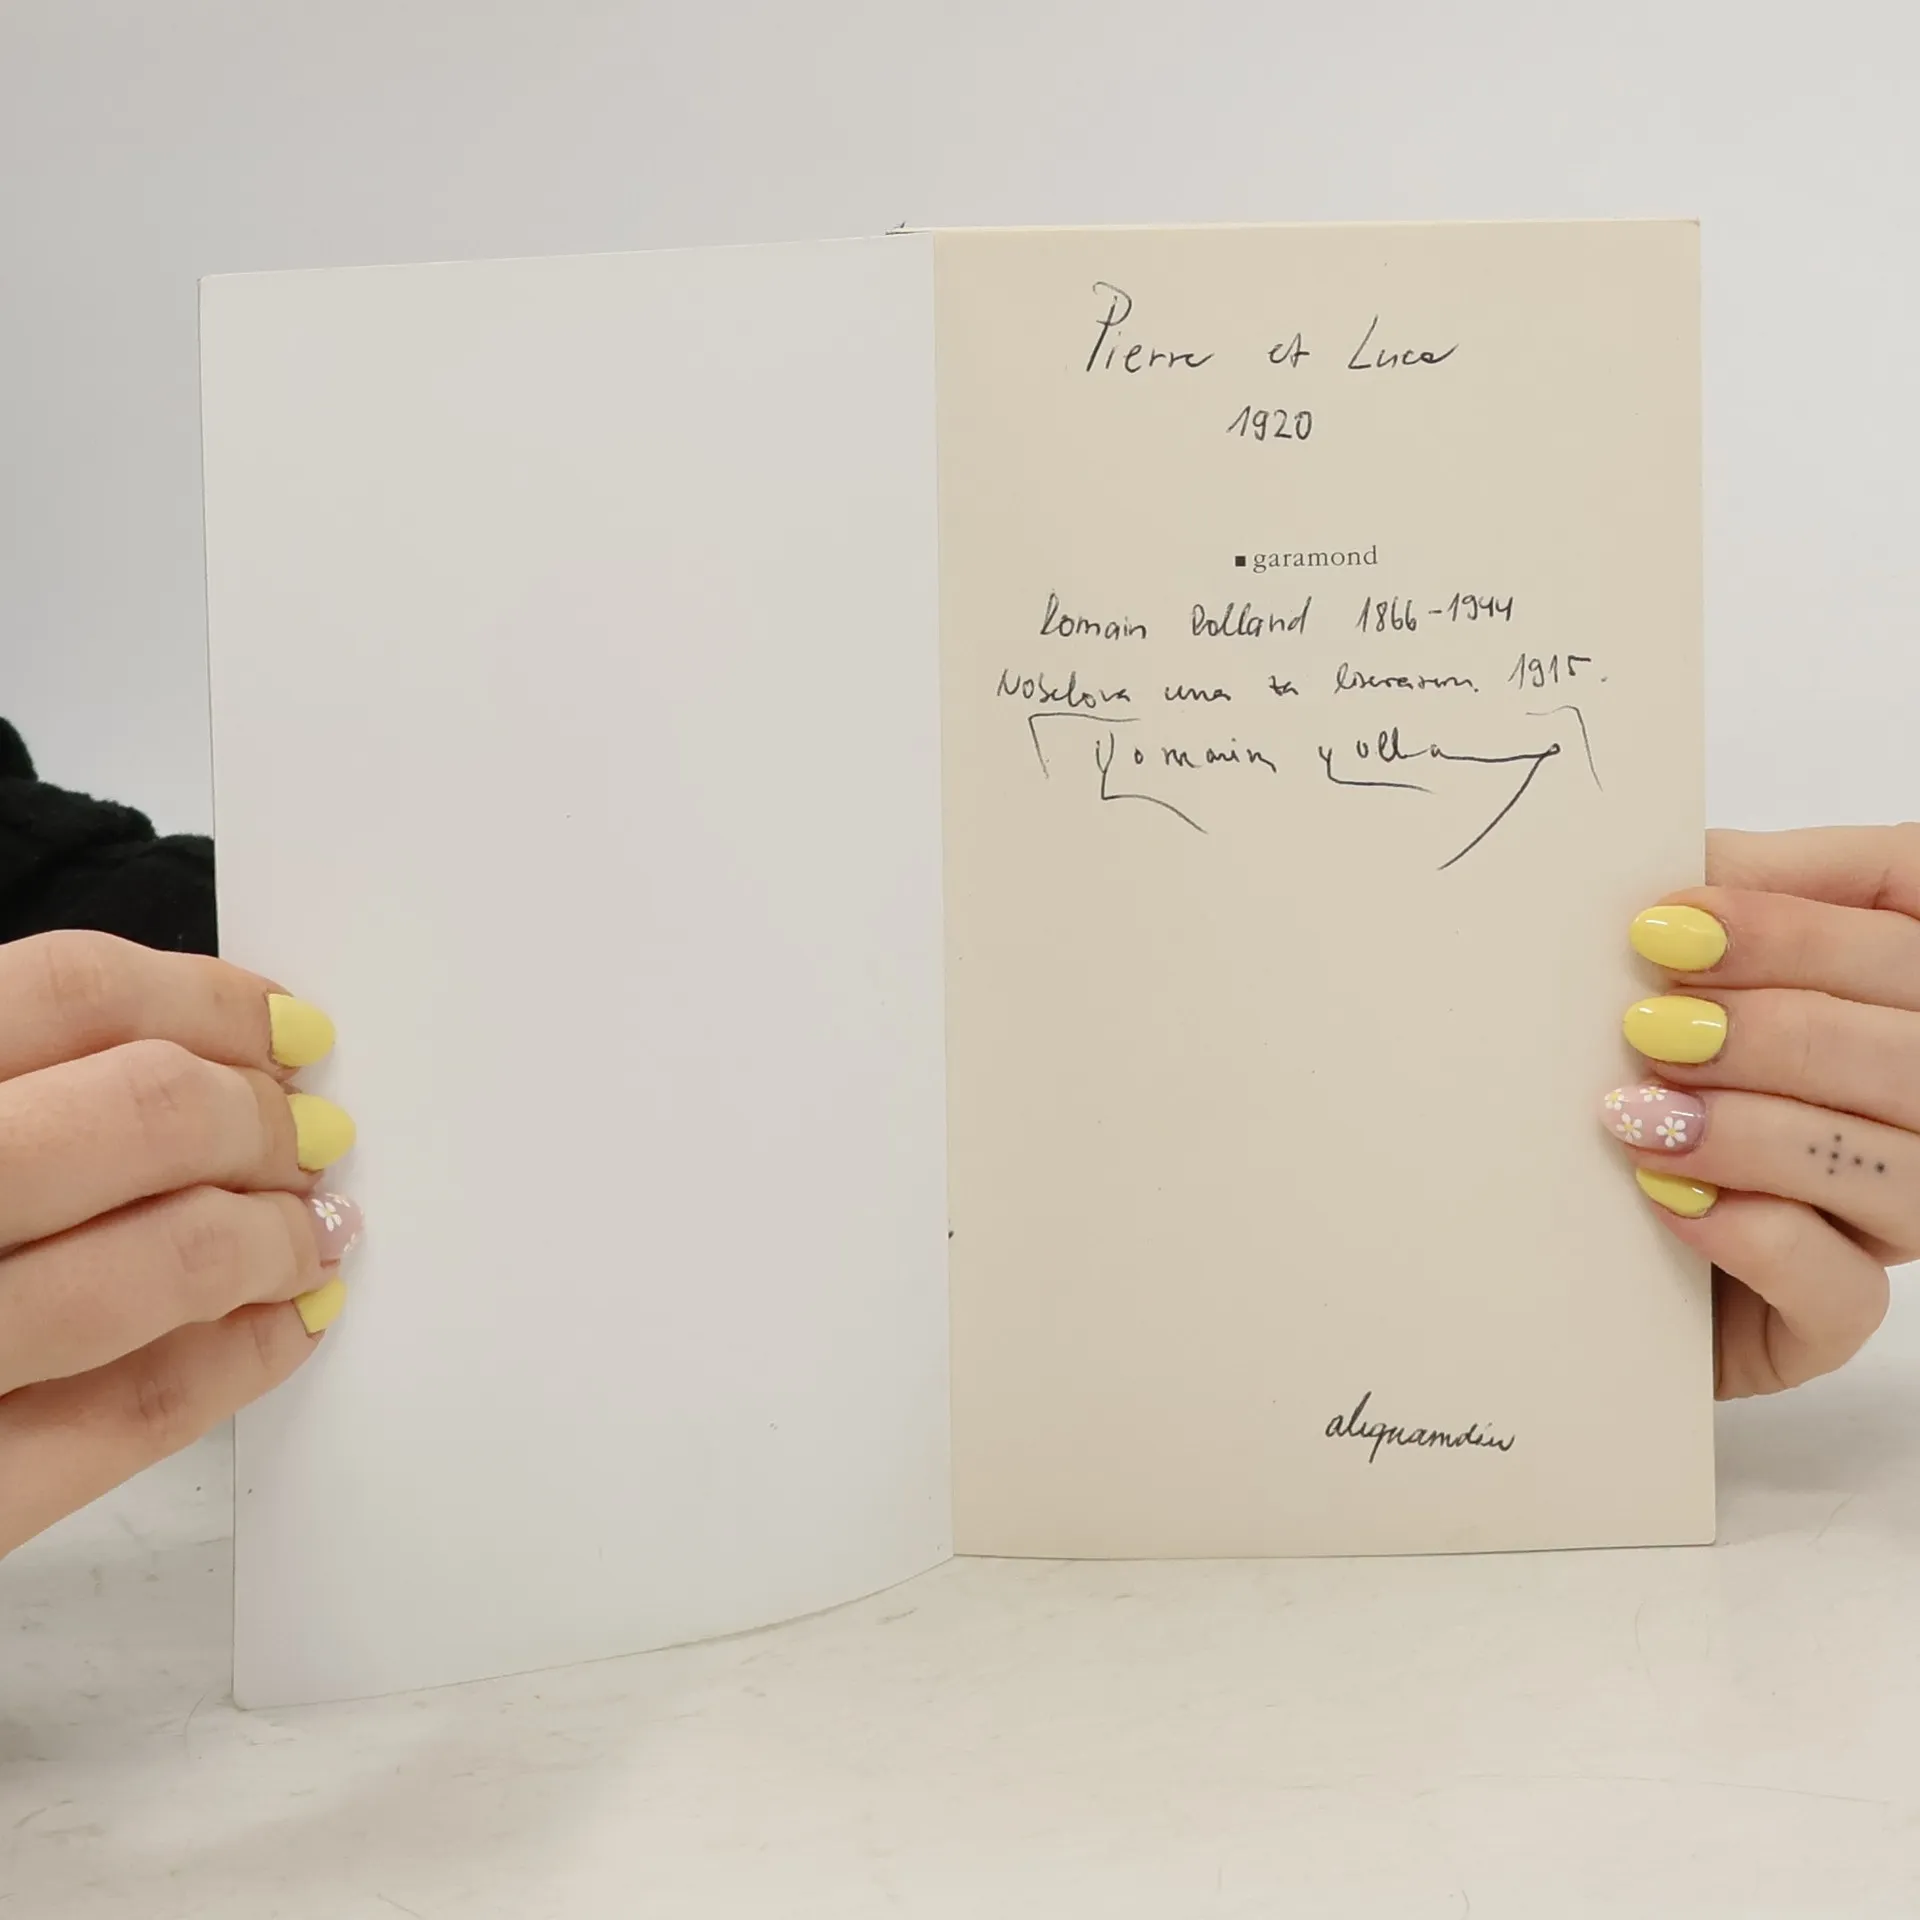 Pierre et Luce
1920
garamond
Romain Rolland 1866-1944
Nobelova cena za literaturu. 1915.
Romain Rolland
aliquamdiu